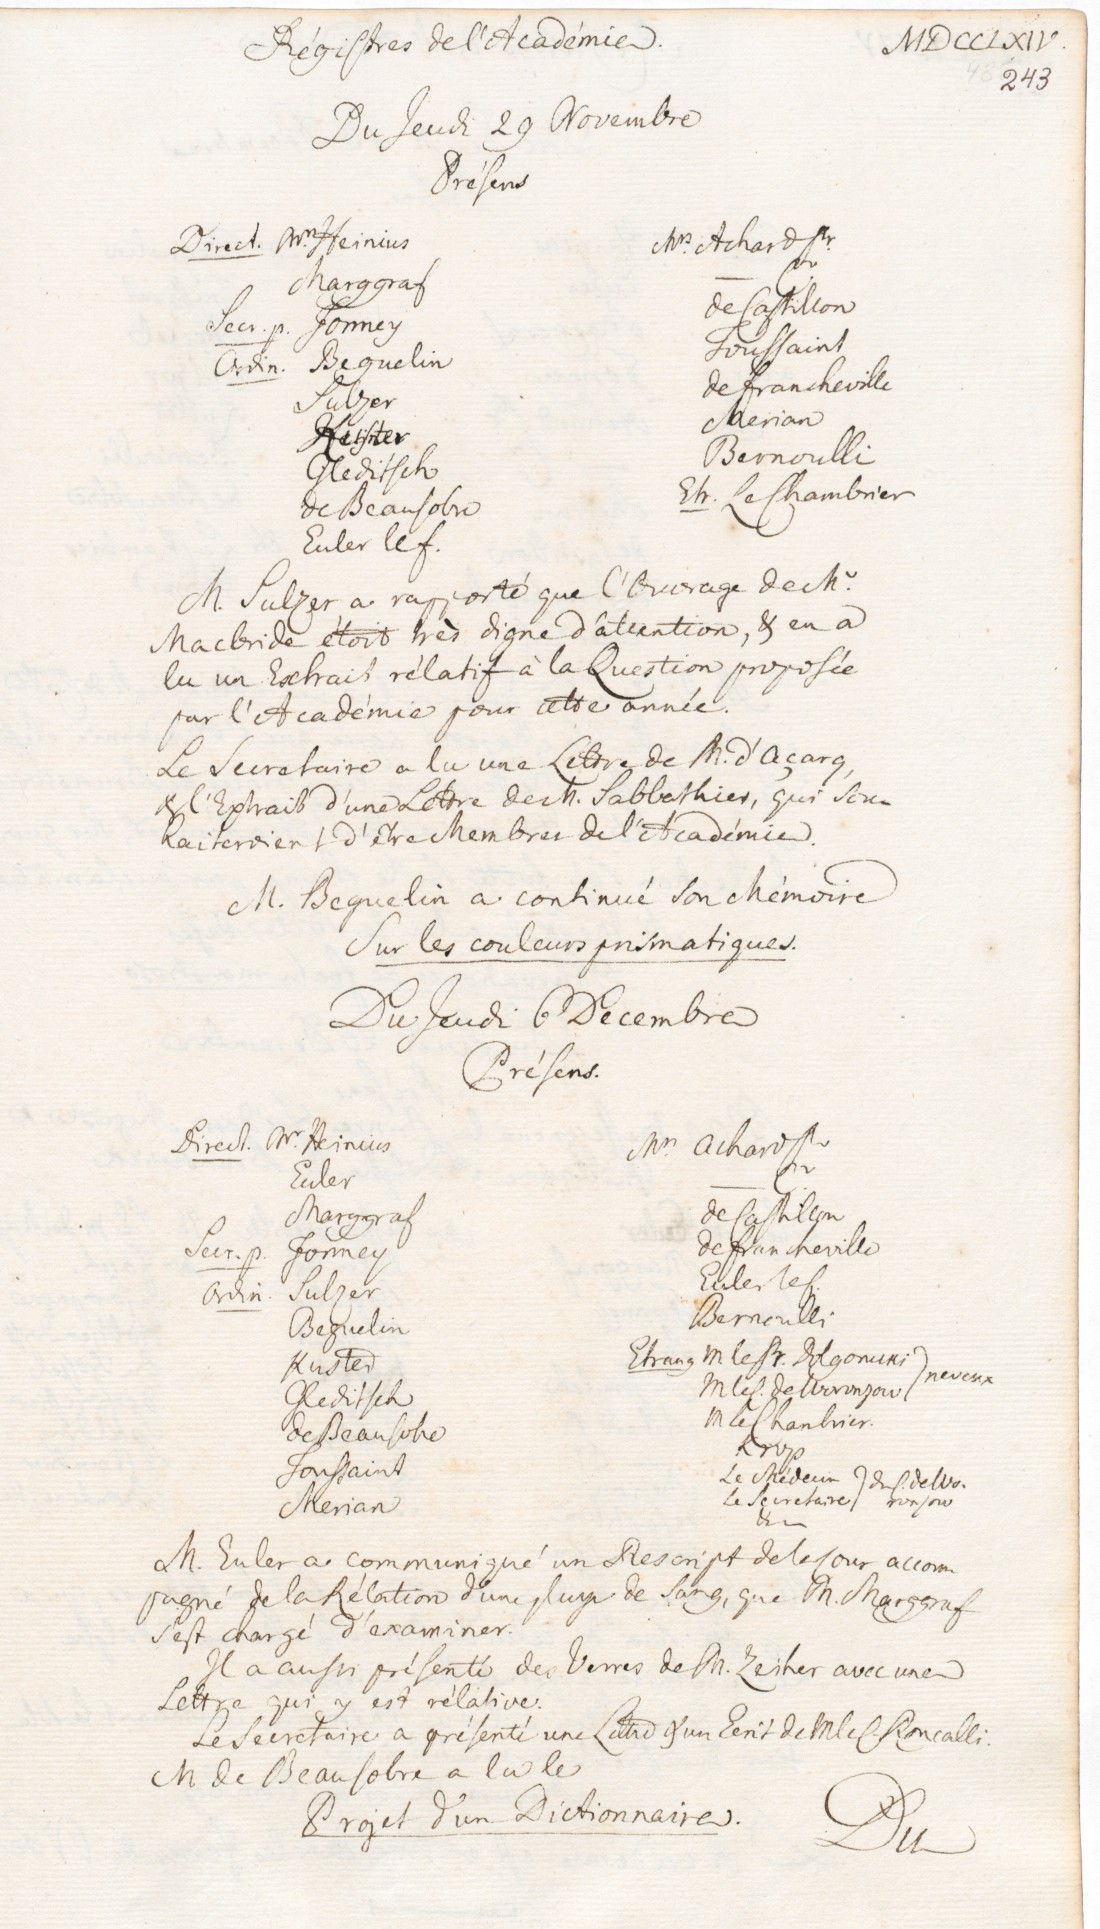 Régistres de l'Académie.
MDCCLXIV.
243
Du Jeudi 29 Novembre
Présens
Direct. Mrs Heinius
Marggraf
Secr. p. Formey
Ordin. Beguelin
Sulzer
Kuster
Gleditsch
de Beausobre
Euler le f.
Mrs Achard Sr.
— Jr
de Castillon
Toussaint
de Francheville
Merian
Bernoulli
Etr. Le Chambrier
M. Sulzer a rapporté que l'Ouvrage de Mr
Macbride étoit très digne d'attention, & en a
lu un Extrait rélatif à la Question proposée
par l'Académie pour cette année.
Le Secretaire a lu une Lettre de M. d'Açarq,
& l'Extrait d'une Lettre de M. Sabbathier, qui sou-
haiteroient d'être Membres de l'Académie.
M. Beguelin a continué son Mémoire
Sur les couleurs prismatiques.
Du Jeudi 6 Decembre
Présens.
Direct. Mrs Heinius
Euler
Marggraf
Secr. p. Formey
Ordin. Sulzer
Beguelin
Kuster
Gleditsch
de Beausobre
Toussaint
Merian
Mrs Achard Sr
— Jr
de Castillon
de Francheville
Euler le f.
Bernoulli
Etrang M le Pr. Dolgorucki
M le C. de Woronzow } neveux
M le Chambrier.
Krop
Le Médecin
Le Secretaire } du C. de Wo-
ronzow
&c
M. Euler a communiqué un Rescript de la Cour accom-
pagné de la Rélation d'une pluye de sang, que M. Marggraf
s'est chargé d'examiner.
Il a aussi présenté des Verres de M. Zeiher avec une
Lettre qui y est rélative.
Le Secretaire a présenté une Lettre & un Ecrit de M le C. Roncalli.
M de Beausobre a lu le
Projet d'un Dictionnaire.
Du